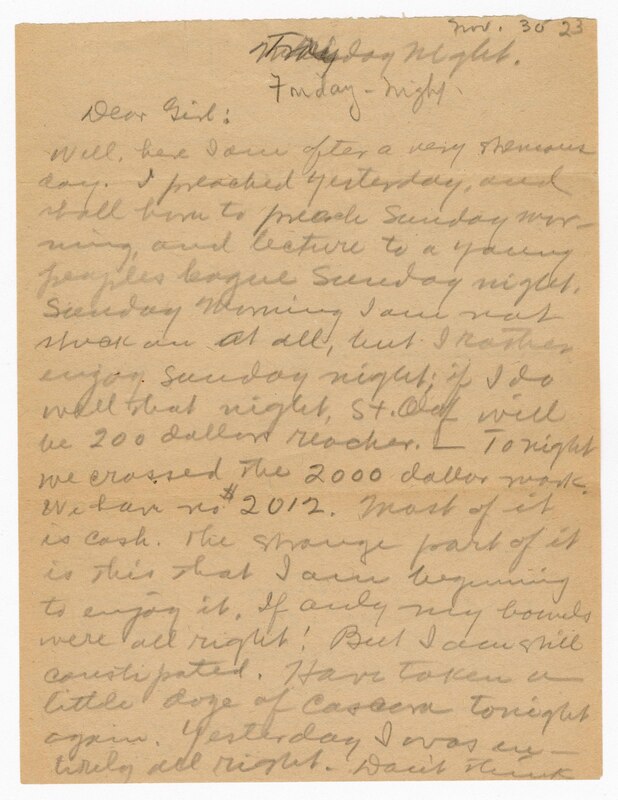 Nov. 30 23
day Night.
Friday - night.
Dear Girl:
Well, here I am after a very strenuous
day. I preached yesterday, and
shall have to preach Sunday mor-
ning, and lecture to a young
peoples league Sunday night.
Sunday Morning I am not
stuck on at all, but I rather
enjoy Sunday night; if I do
well that night, St. Olaf will
be 200 dollars reacher. – Tonight
we crossed the 2000 dollar mark.
We have no $2012. Most of it
is cash. The strange part of it
is this that I am beginning
to enjoy it. If only my bowels
were all right! But I am still
constipated. Have taken a
little doze of Cascara tonight
again. Yesterday I was en-
tirely all right. Don't think